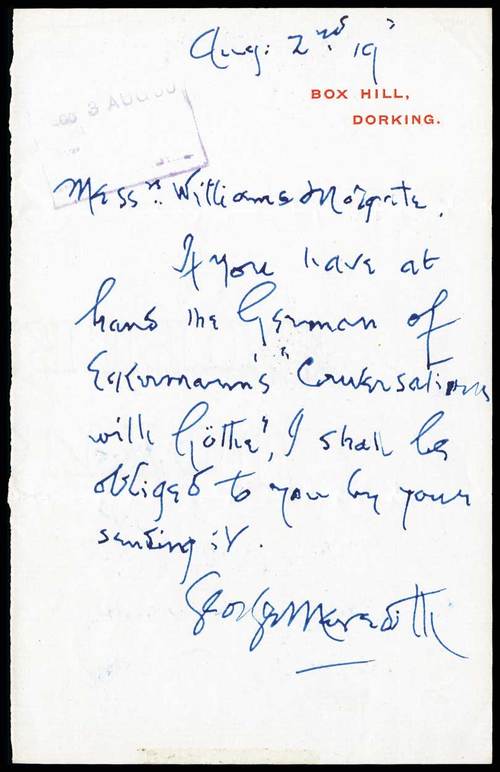 Aug: 2nd. 19
BOX HILL,
DORKING.
3 AUG 00
Messrs. Williams & Norgate.
If you have at
hand the German of
Eckermann's "Conversations
with Göthe", I shall be
obliged to you by your
sending it.
George Meredith